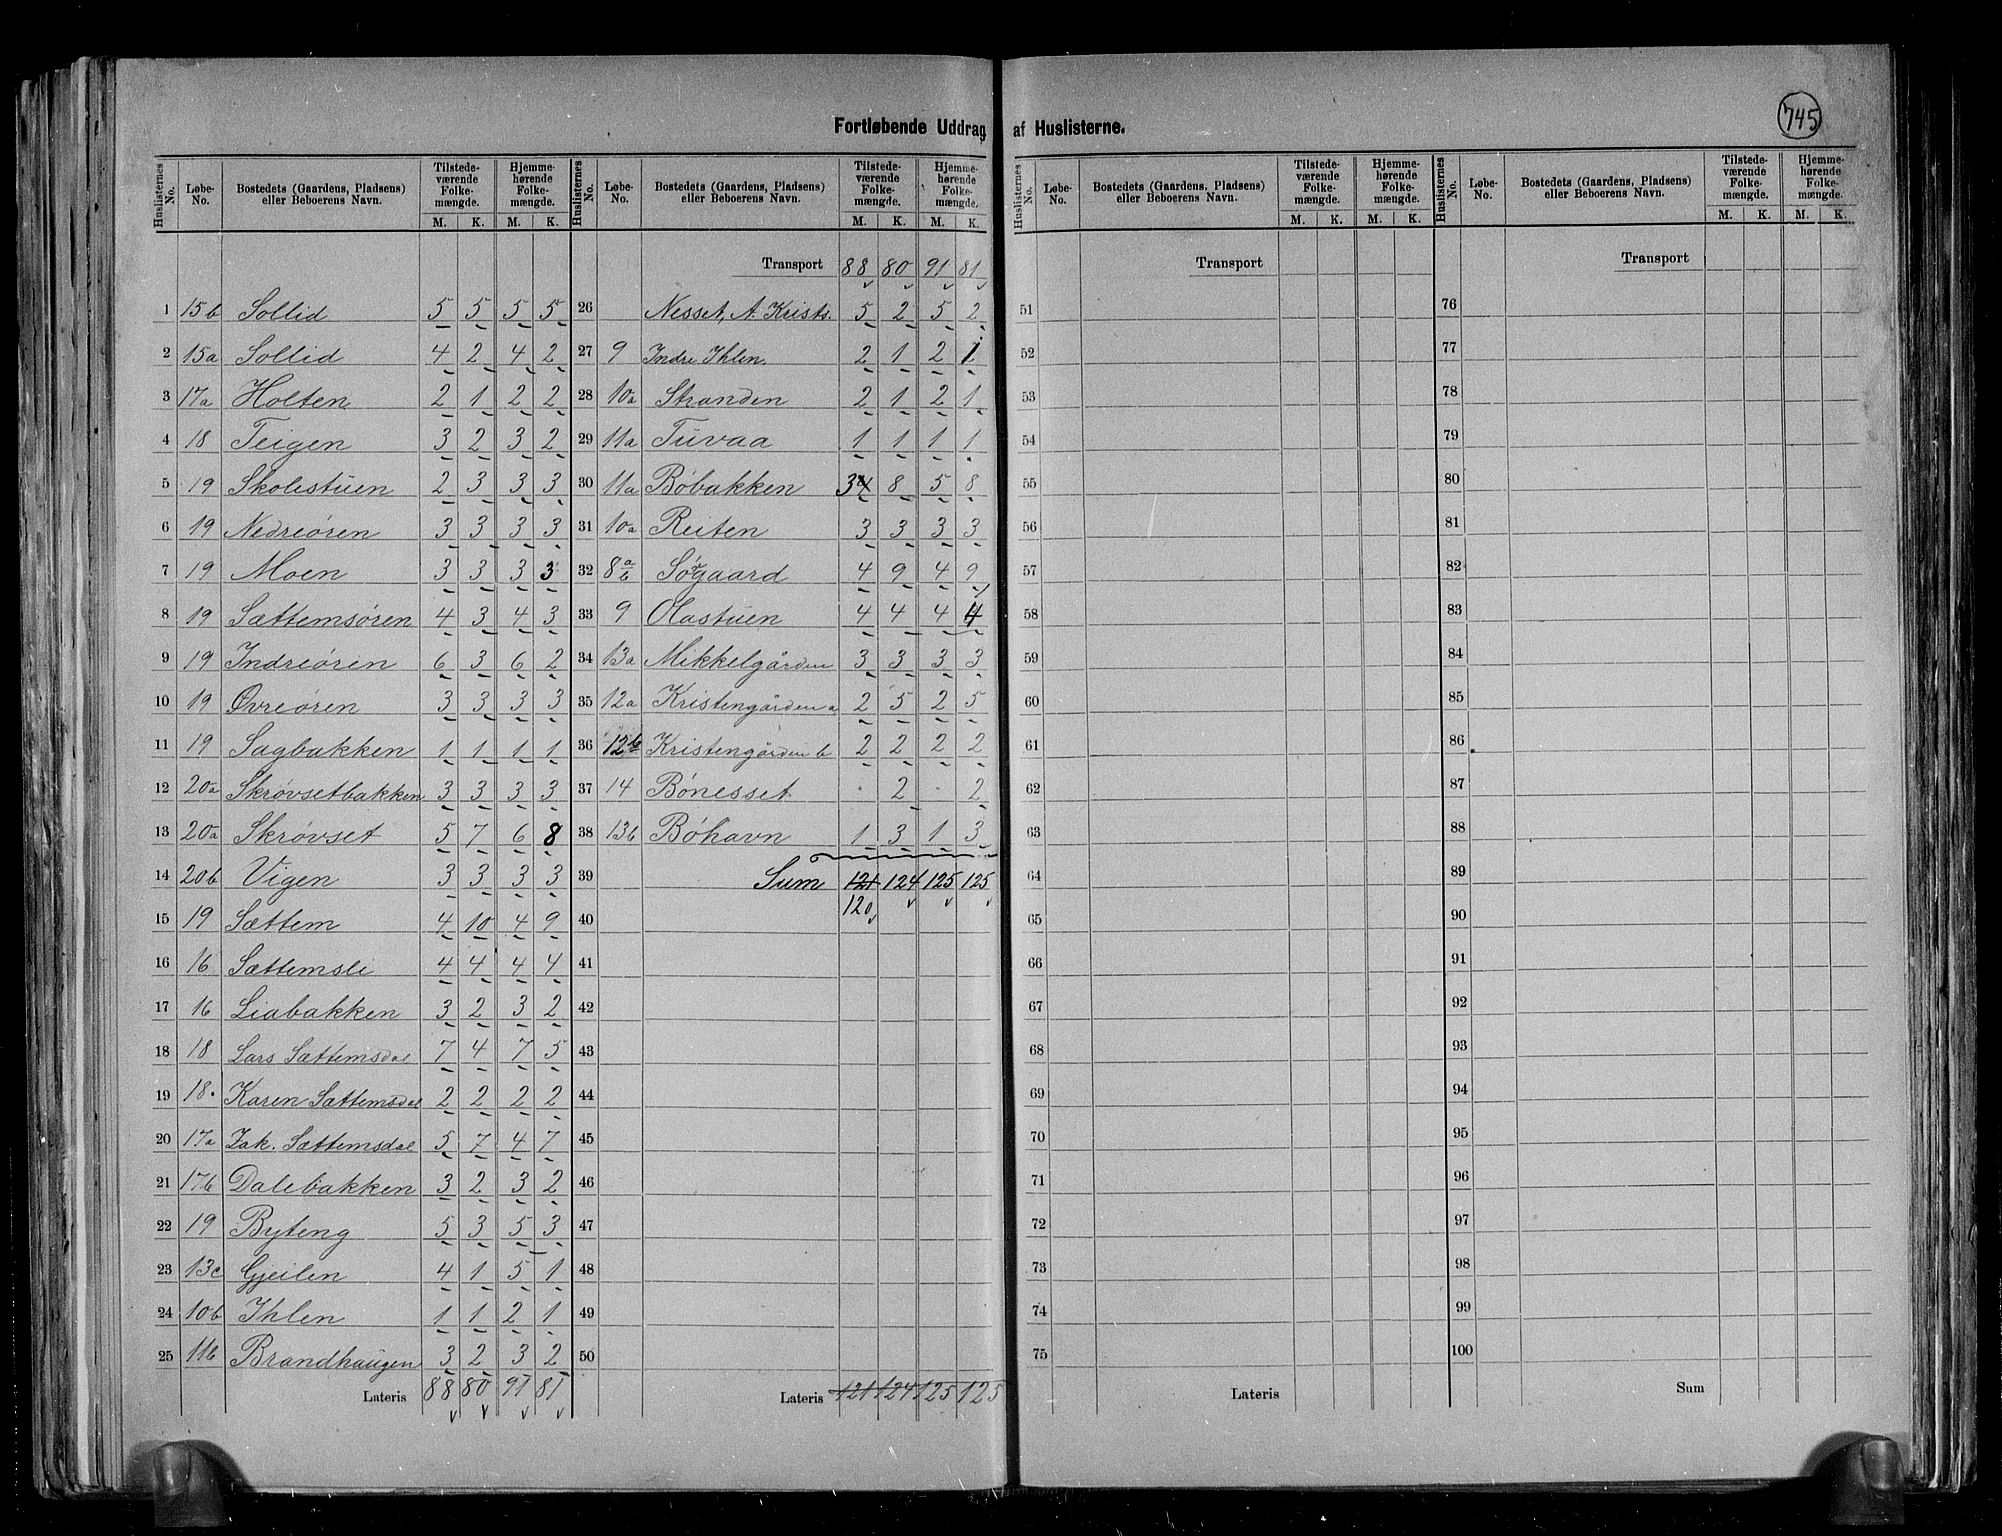 Fortløbende Uddrag af Huslisterne.
745
Huslisternes No. | Løbe-No. | Bostedets (Gaardens, Pladsens) eller Beboerens Navn. | Tilstedeværende Folkemængde. M. K. | Hjemmehørende Folkemængde. M. K.
1 15b Sollid 5 5 5 5
2 15a Sollid 4 2 4 2
3 17a Holten 2 1 2 2
4 18 Teigen 3 2 3 2
5 19 Skolestuen 2 3 3 3
6 19 Nedreøren 3 3 3 3
7 19 Moen 3 3 3 3
8 19 Sættemsøren 4 3 4 3
9 19 Indreøren 6 3 6 2
10 19 Øvreøren 3 3 3 3
11 19 Sagbakken 1 1 1 1
12 20a Skrøvsetbakken 3 3 3 3
13 20a Skrøvset 5 7 6 8
14 20b Vigen 3 3 3 3
15 19 Sættem 4 10 4 9
16 16 Sættemsli 4 4 4 4
17 16 Liabakken 3 2 3 2
18 18 Lars Sættemsdal 7 4 7 5
19 18. Karen Sættemsdal 2 2 2 2
20 17a Zak. Sættemsdal 5 7 4 7
21 17b Dalebakken 3 2 3 2
22 19 Byteng 5 3 5 3
23 13c Gjeilen 4 1 5 1
24 10b Ihlen 1 1 2 1
25 11b Brandhaugen 3 2 3 2
Lateris 88 80 91 81
Huslisternes No. | Løbe-No. | Bostedets (Gaardens, Pladsens) eller Beboerens Navn. | Tilstedeværende Folkemængde. M. K. | Hjemmehørende Folkemængde. M. K.
Transport 88 80 91 81
26 Nesset, A. Krists. 5 2 5 2
27 9 Indre Ihlen. 2 1 2 1
28 10a Stranden 2 1 2 1
29 11a Tuvaa 1 1 1 1
30 11a Bøbakken 3 4 8 5 8
31 10a Reiten 3 3 3 3
32 8 a/b Søgaard 4 9 4 9
33 9 Olastuen 4 4 4 4
34 13a Mikkelgården 3 3 3 3
35 12a Kristengården a 2 5 2 5
36 12b Kristengården b 2 2 2 2
37 14 Bønesset 2 2
38 13b Bøhavn 1 3 1 3
39 Sum 121 124 125 125
40 120
41
42
43
44
45
46
47
48
49
50
Lateris 121 124 125 125
Huslisternes No. | Løbe-No. | Bostedets (Gaardens, Pladsens) eller Beboerens Navn. | Tilstedeværende Folkemængde. M. K. | Hjemmehørende Folkemængde. M. K.
Transport
51
52
53
54
55
56
57
58
59
60
61
62
63
64
65
66
67
68
69
70
71
72
73
74
75
Lateris
Huslisternes No. | Løbe-No. | Bostedets (Gaardens, Pladsens) eller Beboerens Navn. | Tilstedeværende Folkemængde. M. K. | Hjemmehørende Folkemængde. M. K.
Transport
76
77
78
79
80
81
82
83
84
85
86
87
88
89
90
91
92
93
94
95
96
97
98
99
100
Sum